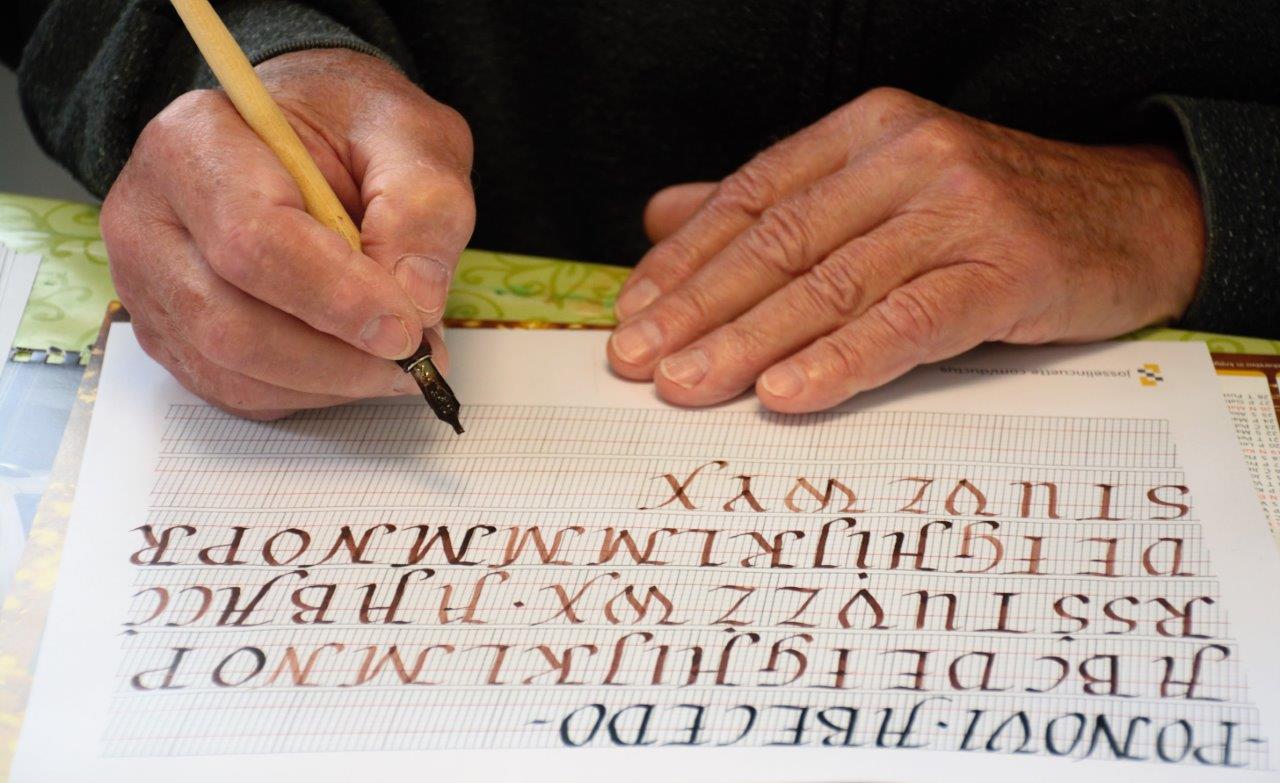 -PONOVI·ABECEDO-
A B C D E F G H I J K L M N O P
R S Š T U V Z Ž W X · A A B A C Č
D E F G H I J K L M M M N N O P R
S T U V Z W Y X
josselincuette.com/ductus